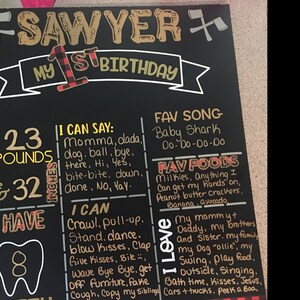 SAWYER
MY 1ST BIRTHDAY
23
POUNDS
& 32 INCHES
I CAN SAY:
Momma, dada,
dog, ball, bye,
there, Hi, yes,
bite-bite, down,
done, No, Yay.
FAV SONG
Baby Shark
Do-Do-Do-Do
FAV FOODS
Milkies, Anything I
Can get my hands on,
Peanut butter crackers,
Banana, avocado
HAVE
8
I CAN
Crawl, pull-up,
Stand, dance,
blow Kisses, Clap
Give Kisses, Bite
Wave Bye Bye, get
OFF Furniture, Fake
Cough, Copy my Sibling
I LOVE
My mommy +
Daddy, my Brothers
And Sister
my Dog
Swing, play Food,
outside, Singing,
Bath time, Kisses, Jesus,
Cars + trucks, Peek a Boo